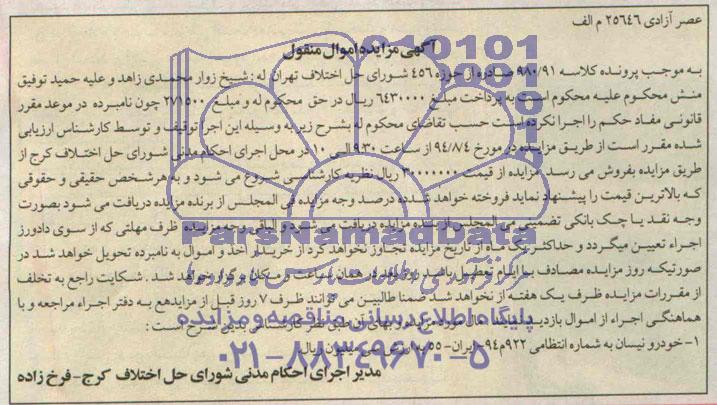 عصر آزادی ۲۵۶۴۶ م الف
آگهی مزایده اموال منقول
به موجب پرونده کلاسه ۹۸۰/۹۱ صادره از حوزه ۴۵۶ شورای حل اختلاف تهران له : شیخ زوار محمدی زاهد و علیه حمید توفیق
منش محکوم علیه محکوم است به پرداخت مبلغ ۶۴۳۰۰۰۰ ریال در حق محکوم له و مبلغ ۲۷۱۵۰۰ چون نامبرده در موعد مقرر
قانونی مفاد حکم را اجرا نکرده است حسب تقاضای محکوم له بشرح زیر به وسیله این اجرا توقیف و توسط کارشناس ارزیابی
شده مقرر است از طریق مزایده در مورخ ۹۴/۸/۴ از ساعت ۹:۳۰ الی ۱۰ در محل اجرای احکام مدنی شورای حل اختلاف کرج از
طریق مزایده بفروش می رسد. مزایده از قیمت ۳۰۰۰۰۰۰۰ ریال نظریه کارشناسی شروع می شود و به هر شخص حقیقی و حقوقی
که بالاترین قیمت را پیشنهاد نماید فروخته خواهد شد ده درصد وجه مزایده فی المجلس از برنده مزایده دریافت می شود بصورت
وجه نقد یا چک بانکی تضمینی فی المجلس از برنده مزایده دریافت می شود و الباقی وجه مزایده ظرف مهلتی که از سوی دادورز
اجراء تعیین میگردد و حداکثر یک ماه از تاریخ مزایده تجاوز نخواهد کرد از خریدار اخذ و اموال به نامبرده تحویل خواهد شد در
صورتیکه روز مزایده مصادف با ایام تعطیل باشد روز بعد در همان ساعت و مکان برگزار خواهد شد . شکایت راجع به تخلف
از مقررات مزایده ظرف یک هفته از نخواهد شد ضمنا طالبین می توانند ظرف ۷ روز قبل از مزایده به دفتر اجراء مراجعه و با
هماهنگی اجراء از اموال بازدید نمایند اموال مورد مزایده و بهای آن طبق نظر کارشناس بدین شرح است :
۱- خودرو نیسان به شماره انتظامی ۹۲۲م۹۴-ایران-۵۵ به ارزش سی میلیون ریال
مدیر اجرای احکام مدنی شورای حل اختلاف کرج- فرخ زاده
ParsNamadData
مرکز فرآوری اطلاعات پارس نماد داده ها
پایگاه اطلاع رسانی مناقصه و مزایده
۰۲۱-۸۸۳۴۹۶۷۰-۵